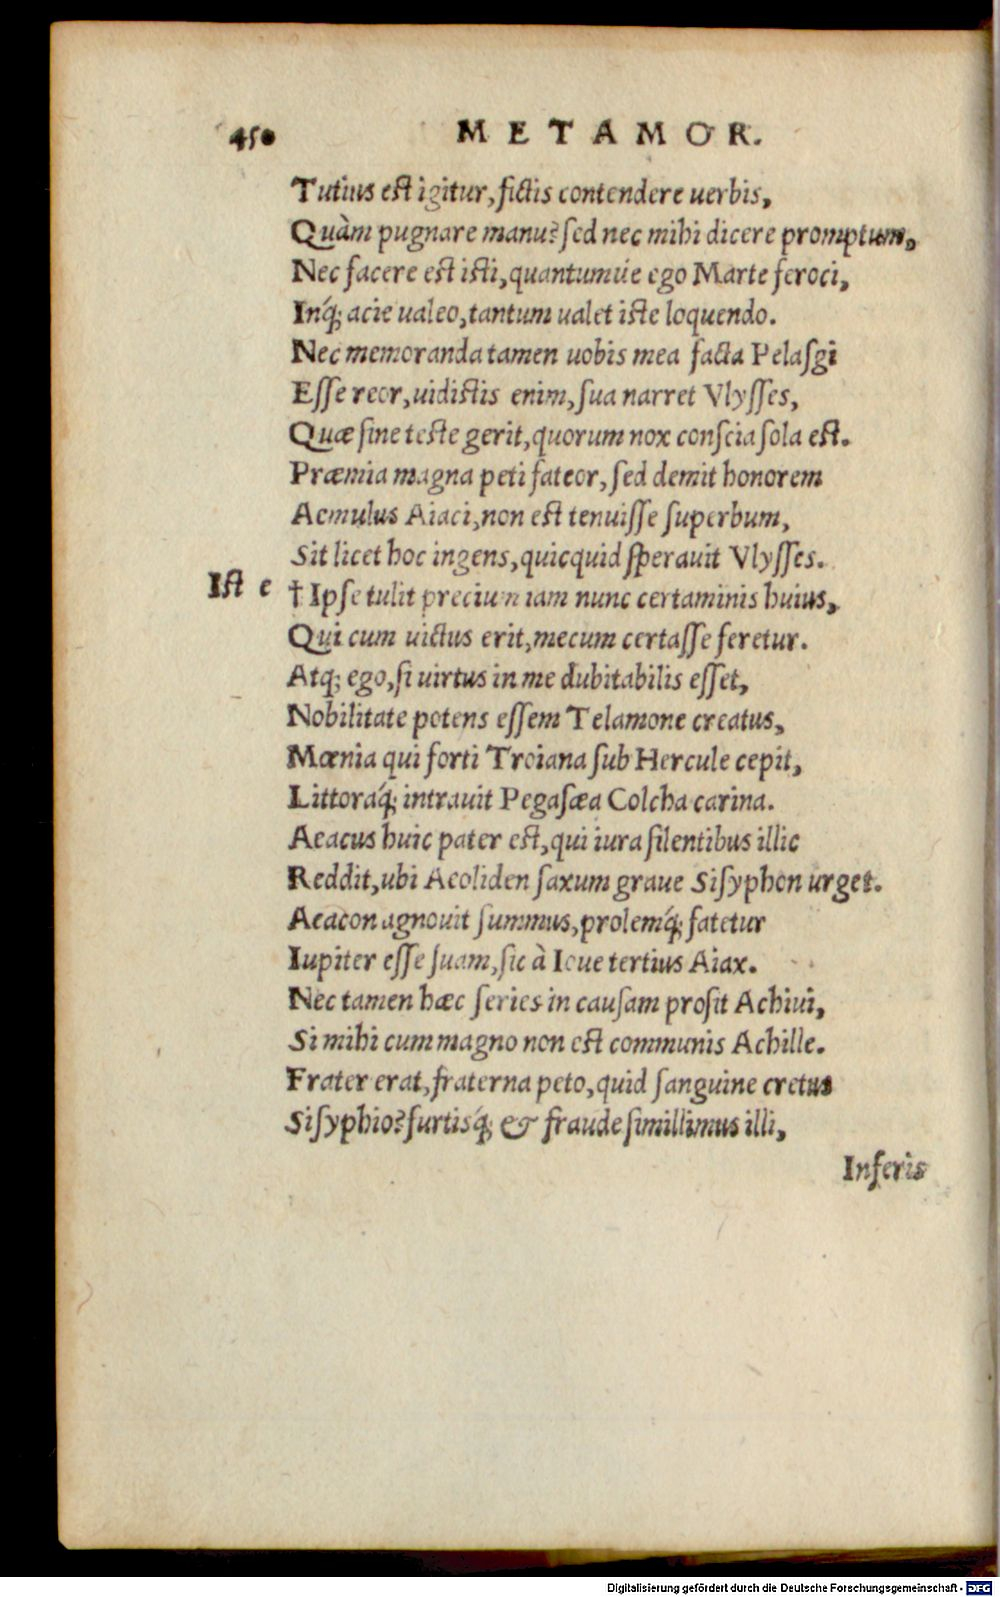 450 METAMOR.
Tutius est igitur, fictis contendere uerbis,
Quàm pugnare manu? sed nec mihi dicere promptum,
Nec facere est isti, quantumúe ego Marte feroci,
Inq́; acie ualeo, tantum ualet iste loquendo.
Nec memoranda tamen uobis mea facta Pelasgi
Esse reor, uidistis enim, sua narret Vlysses,
Quæ sine teste gerit, quorum nox conscia sola est.
Præmia magna peti fateor, sed demit honorem
Aemulus Aiaci, non est tenuisse superbum,
Sit licet hoc ingens, quicquid sperauit Vlysses.
Ist e † Ipse tulit precium iam nunc certaminis huius,
Qui cum uictus erit, mecum certasse feretur.
Atq; ego, si uirtus in me dubitabilis esset,
Nobilitate potens essem Telamone creatus,
Mœnia qui forti Troiana sub Hercule cepit,
Littoraq́; intrauit Pegasæa Colcha carina.
Aeacus huic pater est, qui iura silentibus illic
Reddit, ubi Aeoliden saxum graue Sisyphon urget.
Aeacon agnouit summus, prolemq́; fatetur
Iupiter esse suam, sic à Ioue tertius Aiax.
Nec tamen hæc series in causam prosit Achiui,
Si mihi cum magno non est communis Achille.
Frater erat, fraterna peto, quid sanguine cretus
Sisyphio? furtisq́; & fraude simillimus illi,
Inferis
Digitalisierung gefördert durch die Deutsche Forschungsgemeinschaft - DFG